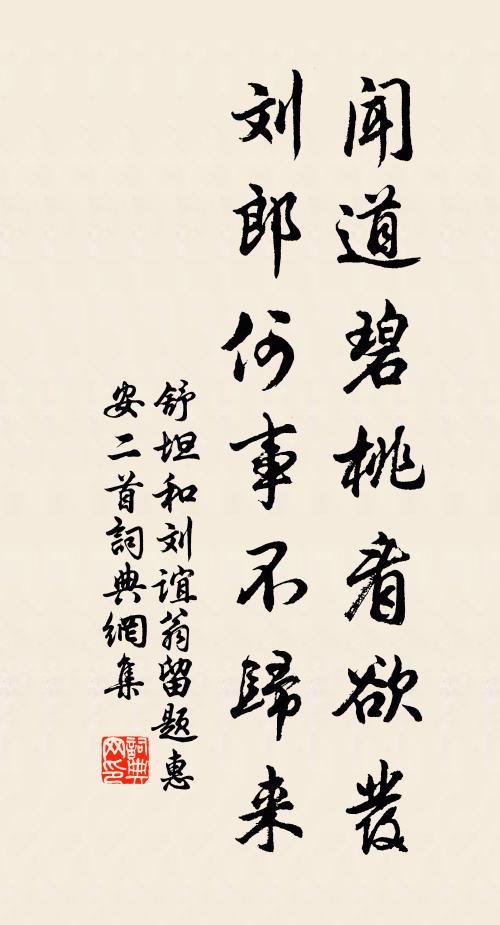 闻道碧桃看欲發
刘郎何事不歸来
舒坦和刘谊翁留题惠
安二首詞典網集
詞典
网印